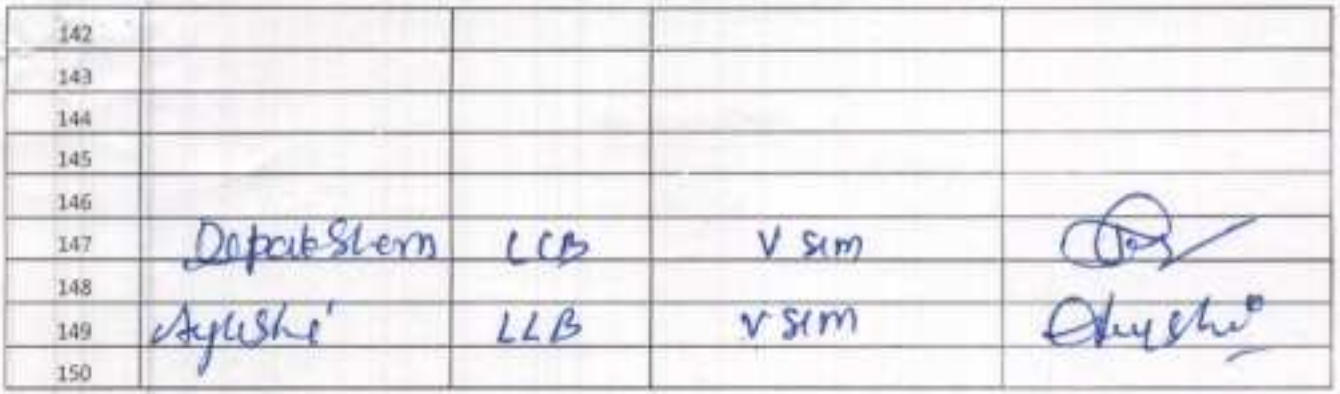 142
143
144
145
146
147 Depak LLB V sem
148
149 Ayushi LLB V sem Ayushi
150